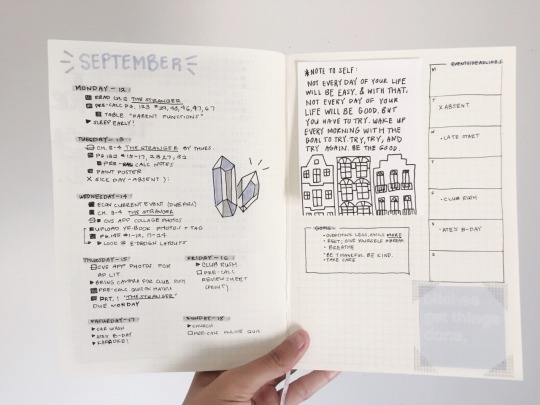 SEPTEMBER
MONDAY - 12
READ CH. 2 THE STRANGER
PRE-CALC PG. 123 # 39, 43, 46, 47, 67
TABLE "PARENT FUNCTIONS"
SLEEP EARLY!
TUESDAY - 13
CH. 3-4 THE STRANGER BY THURS.
PRE-CALC NOTES
PAINT POSTER
X SICK DAY - ABSENT ):
WEDNESDAY - 14
ECON CURRENT EVENT
CH. 3-4 THE STRANGER
CVS APP COLLAGE PHOTOS
UPLOAD YR-BOOK PHOTOS + TAG
LOOK @ E-DESIGN LAYOUTS
THURSDAY - 15
CVS APP PHOTOS FOR
AP LIT
BRING CAMERA FOR CLUB RUSH
PRE-CALC QUIZ ON
"THE STRANGER"
DUE MONDAY
FRIDAY - 16
CLUB RUSH
PRE-CALC
REVIEW SHEET
(PRINT)
SATURDAY - 17
CAR WASH
B-DAY
KARAOKE!
SUNDAY - 18
CHURCH
ONLINE QUIZ
*NOTE TO SELF:
NOT EVERY DAY OF YOUR LIFE
WILL BE EASY. & WITH THAT,
NOT EVERY DAY OF YOUR
LIFE WILL BE GOOD. BUT
YOU HAVE TO TRY. WAKE UP
EVERY MORNING WITH THE
GOAL TO TRY. TRY, TRY, AND
TRY AGAIN. BE THE GOOD.
GOALS:
- OVERTHINK LESS, SMILE MORE
- REST; GIVE YOURSELF A BREAK
- BREATHE
- BE THANKFUL. BE KIND.
- TAKE CARE
EVENTS/DEADLINES
M
T
X ABSENT
W
- LATE START
T
F
- CLUB RUSH
S
B-DAY
S
get things
done.